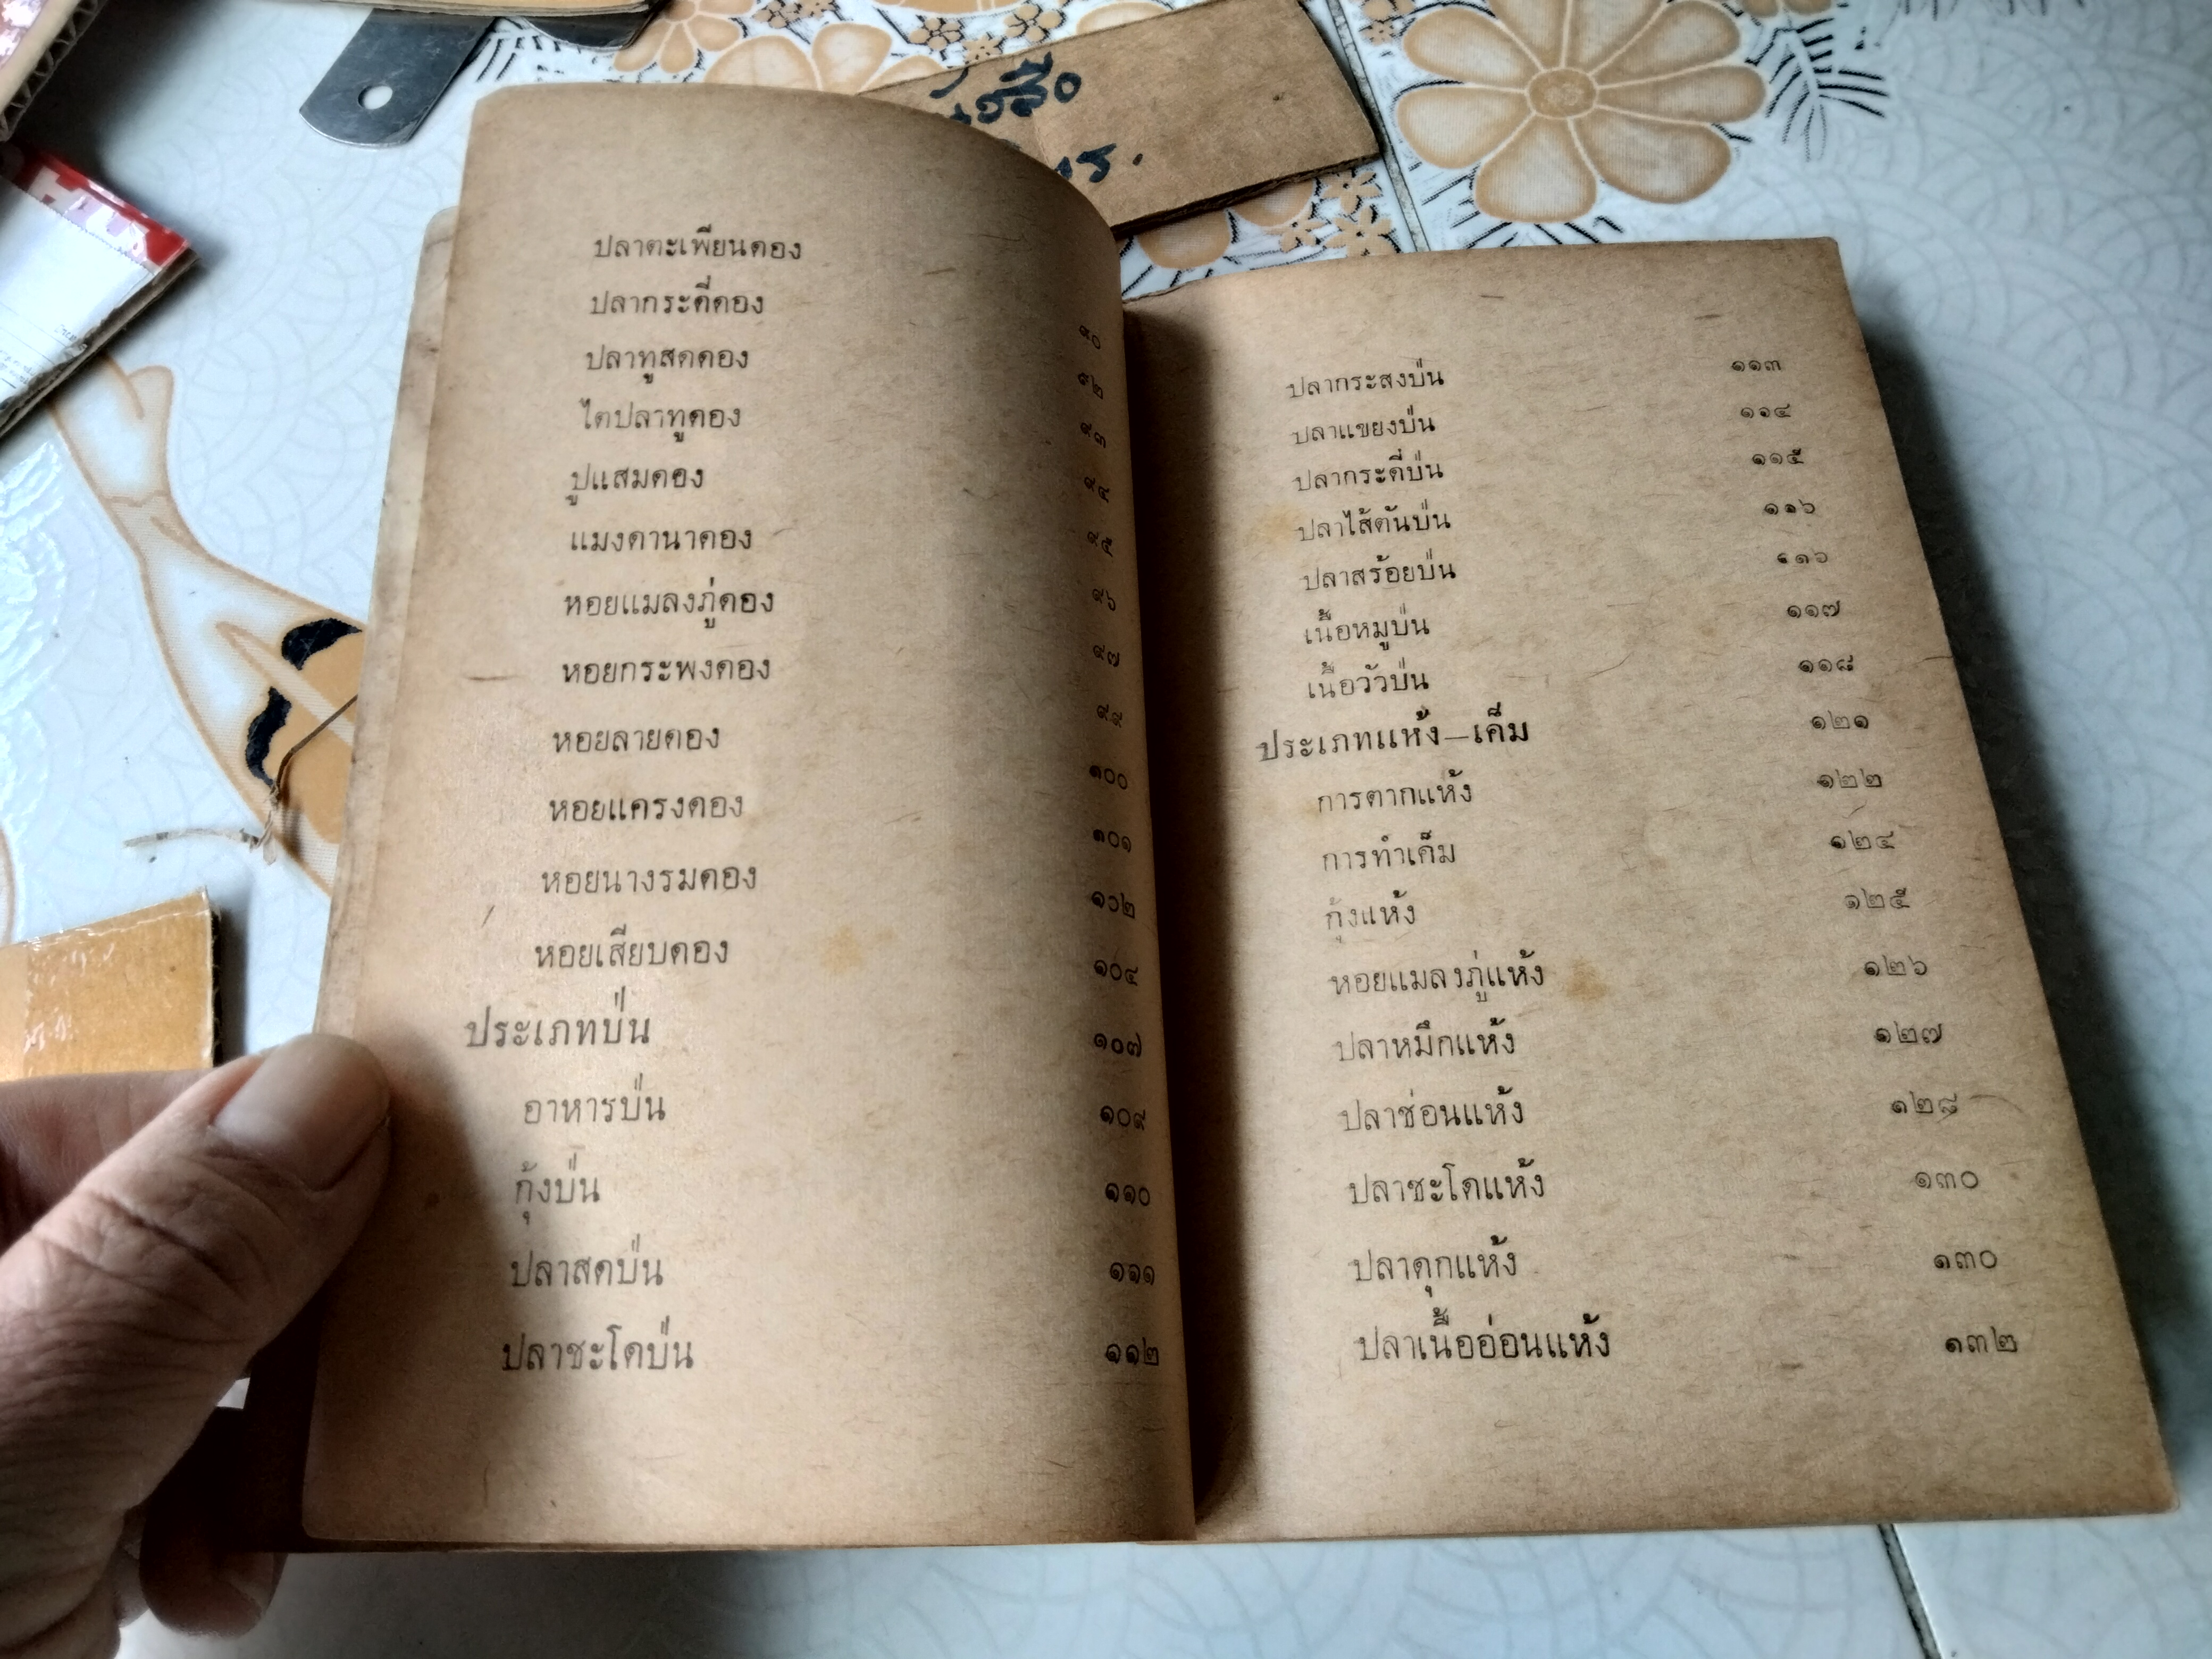 ปลาตะเพียนดอง ๙๐
ปลากระดี่ดอง ๙๒
ปลาทูสดดอง ๙๓
ไตปลาทูดอง ๙๔
ปูแสมดอง ๙๕
แมงดานาดอง ๙๖
หอยแมลงภู่ดอง ๙๗
หอยกระพงดอง ๙๙
หอยลายดอง ๑๐๐
หอยแครงดอง ๑๐๑
หอยนางรมดอง ๑๐๒
หอยเสียบดอง ๑๐๔
ประเภทป่น ๑๐๗
อาหารป่น ๑๐๙
กุ้งป่น ๑๑๐
ปลาสดป่น ๑๑๑
ปลาชะโดป่น ๑๑๒
ปลากระสงป่น ๑๑๓
ปลาแขยงป่น ๑๑๔
ปลากระดี่ป่น ๑๑๕
ปลาไส้ตันป่น ๑๑๖
ปลาสร้อยป่น ๑๑๖
เนื้อหมูป่น ๑๑๗
เนื้อวัวป่น ๑๑๘
ประเภทแห้ง–เค็ม ๑๒๑
การตากแห้ง ๑๒๒
การทำเค็ม ๑๒๔
กุ้งแห้ง ๑๒๕
หอยแมลงภู่แห้ง ๑๒๖
ปลาหมึกแห้ง ๑๒๗
ปลาช่อนแห้ง ๑๒๘
ปลาชะโดแห้ง ๑๓๐
ปลาดุกแห้ง ๑๓๐
ปลาเนื้ออ่อนแห้ง ๑๓๒